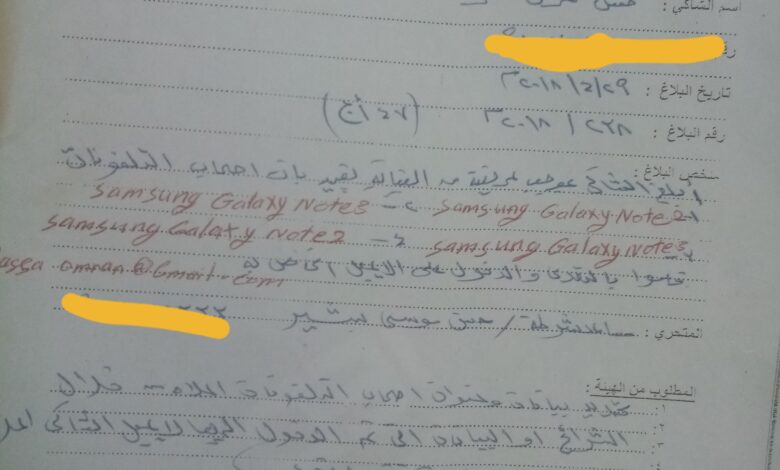 اسم الشاكي :
تاريخ البلاغ : ٢٠١٨/٤/٢٩م
رقم البلاغ : ٢٢٨ / ٢٠١٨م (٤٧ أ ج)
ملخص البلاغ : أبلغ الشاكي بموجب عريضة من النيابة يفيد بأن أصحاب التلفونات
١- Samsung Galaxy Note 2 ٢- Samsung Galaxy Note 3
Samsung Galaxy Note 3 ٤- Samsung Galaxy Note 2
قاموا بالتعدي والدخول على الايميل الخاص به
omran@Gmail.com
المتحري : مساعد شرطة / حسن موسى بشير
المطلوب من الهيئة :
١: تحديد بيانات وعنوان أصحاب التلفونات أعلاه من خلال
٢: الشرائح أو البيانات التي تم الدخول بها لايميل الشاكي
٣: